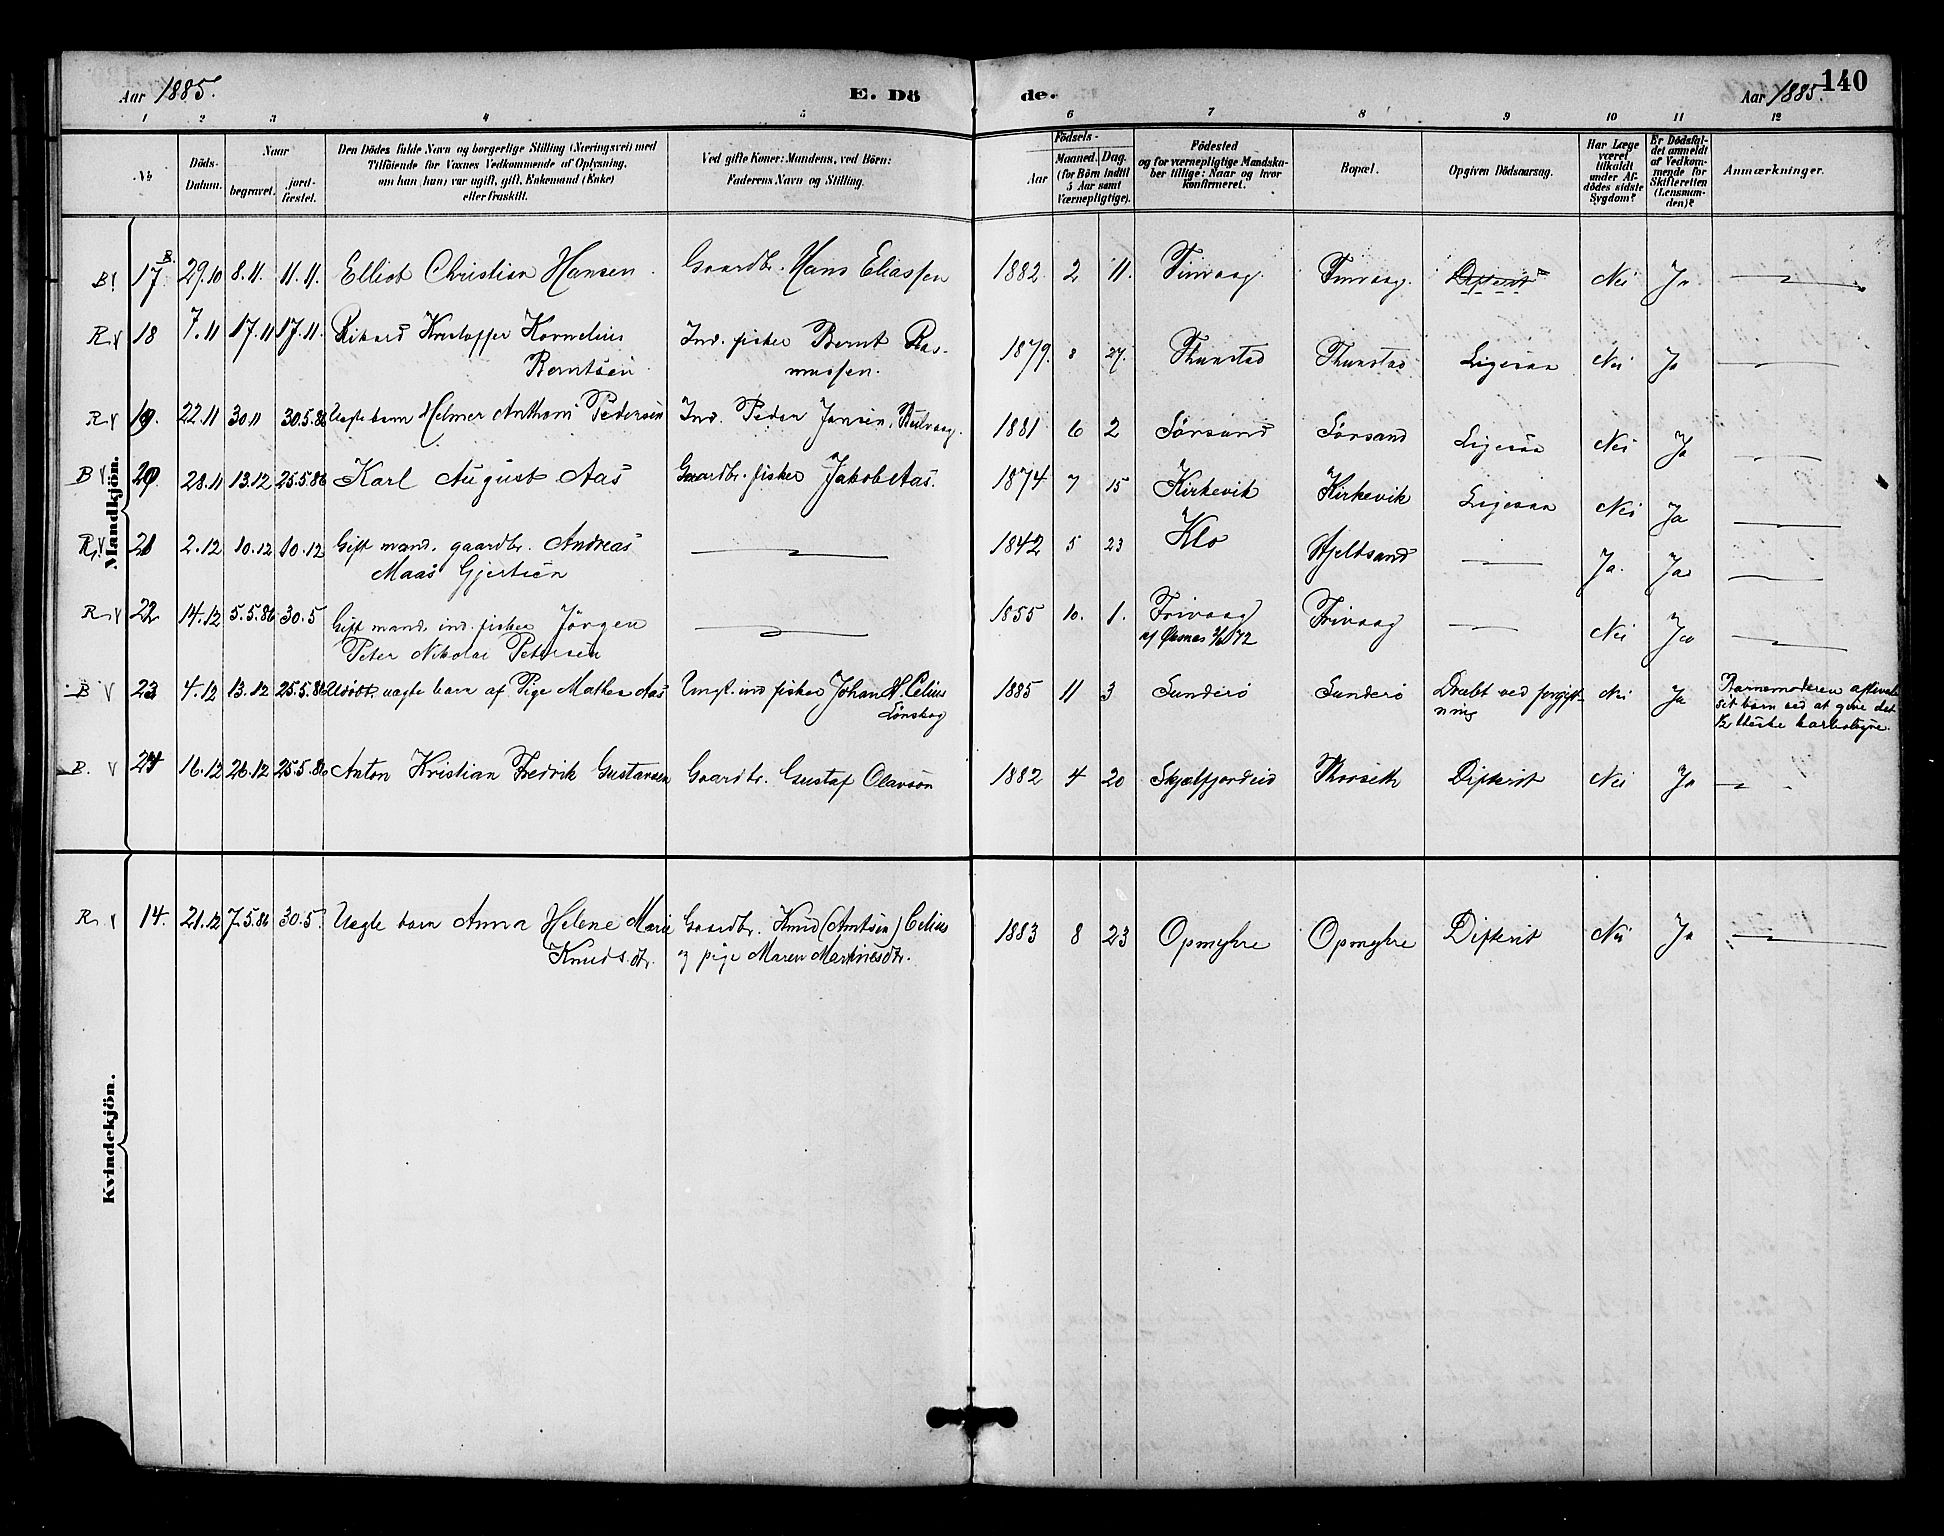 Aar 1885.
E. Dö
de.
Aar 1885.
140
1 2 3 4 5 6 7 8 9 10 11 12
No
Döds-
Datum.
Naar
begravet.
jord-
fæstet.
Den Dödes fulde Navn og borgerlige Stilling (Næringsvei) med
Tilföiende for Voxnes Vedkommende af Oplysning,
om han (hun) var ugift, gift, Enkemand (Enke)
eller fraskilt.
Ved gifte Koner: Mandens, ved Börn:
Faderens Navn og Stilling.
Födsels-
Aar
Maaned. Dag.
(for Börn indtil
5 Aar samt
Værnepligtige).
Födested
og for værnepligtige Mandska-
ber tillige: Naar og hvor
konfirmeret.
Bopæl.
Opgiven Dödsaarsag.
Har Læge
været
tilkaldt
under Af-
dödes sidste
Sygdom?
Er Dödsfal-
det anmeldt
af Vedkom-
mende for
Skifteretten
(Lensman-
den)?
Anmærkninger.
Mandkjön.
B! 17 B. 29.10 8.11. 11.11. Elliot Christian Hansen. Gaardbr. Hans Eliassen 1882. 2 11. Finvaag. Finvaag. Difterit Nei Ja
R. V 18 7.11 17.11 17.11. Rikard Kristoffer Kornelius Ind. fisker Bernt Ras- 1879. 8 27. Thunstad Thunstad Ligesaa Nei Ja
Berntsen. mussen.
R. V 19. 22.11 30.11 30.5.86 Uægte barn Helmer Anthoni Pedersen Ind. Peder Jansen, 1881 6 2 Sörsand Sörsand Ligesaa Nei Ja
B V 20. 28.11 13.12 25.5.86 Karl August Aas Gaardbr. fisker Jakob Aas. 1874 7 15 Kirkevik Kirkevik Ligesaa Nei Ja
R. V 21 2.12 10.12 10.12 Gift mand. gaardbr. Andreas 1842 5 23 Klo Hjeltsand Ja. Ja
Maas Gjertsen
R. V 22 14.12 5.5.86 30.5 Gift mand. ind. fisker Jörgen 1855 10. 1. Frivaag Frivaag Nei Ja
Peter Nikolai Petersen
B V 23 4.12 13.12 25.5.86 Udöbt, uægte barn af Pige Mathea Aas Ungk. ind fisker Johan H. Celius 1885 11 3 Sunderö Sunderö Dræbt ved forgift- Nei Ja Barnemoderen aflivede
Lönskog ning sit barn ved at give det
1/2 theske karbolsyre.
B. V 24 16.12 26.12 25.5.86 Anton Kristian Fredrik Gustavsen Gaardbr. Gustaf Olavsön 1882 4 20 Skjælfjordeid Thorseth Difterit Nei Ja
Kvindekjön.
R. V 14. 21.12 7.5.86 30.5. Uægte barn Anna Helene Marie Gaardbr. Knud (Arntsen) Celius 1883 8 23 Opmyhre Opmyhre Difterit Nei Ja
Knuds.dtr. og pige Maren Martinesdtr.